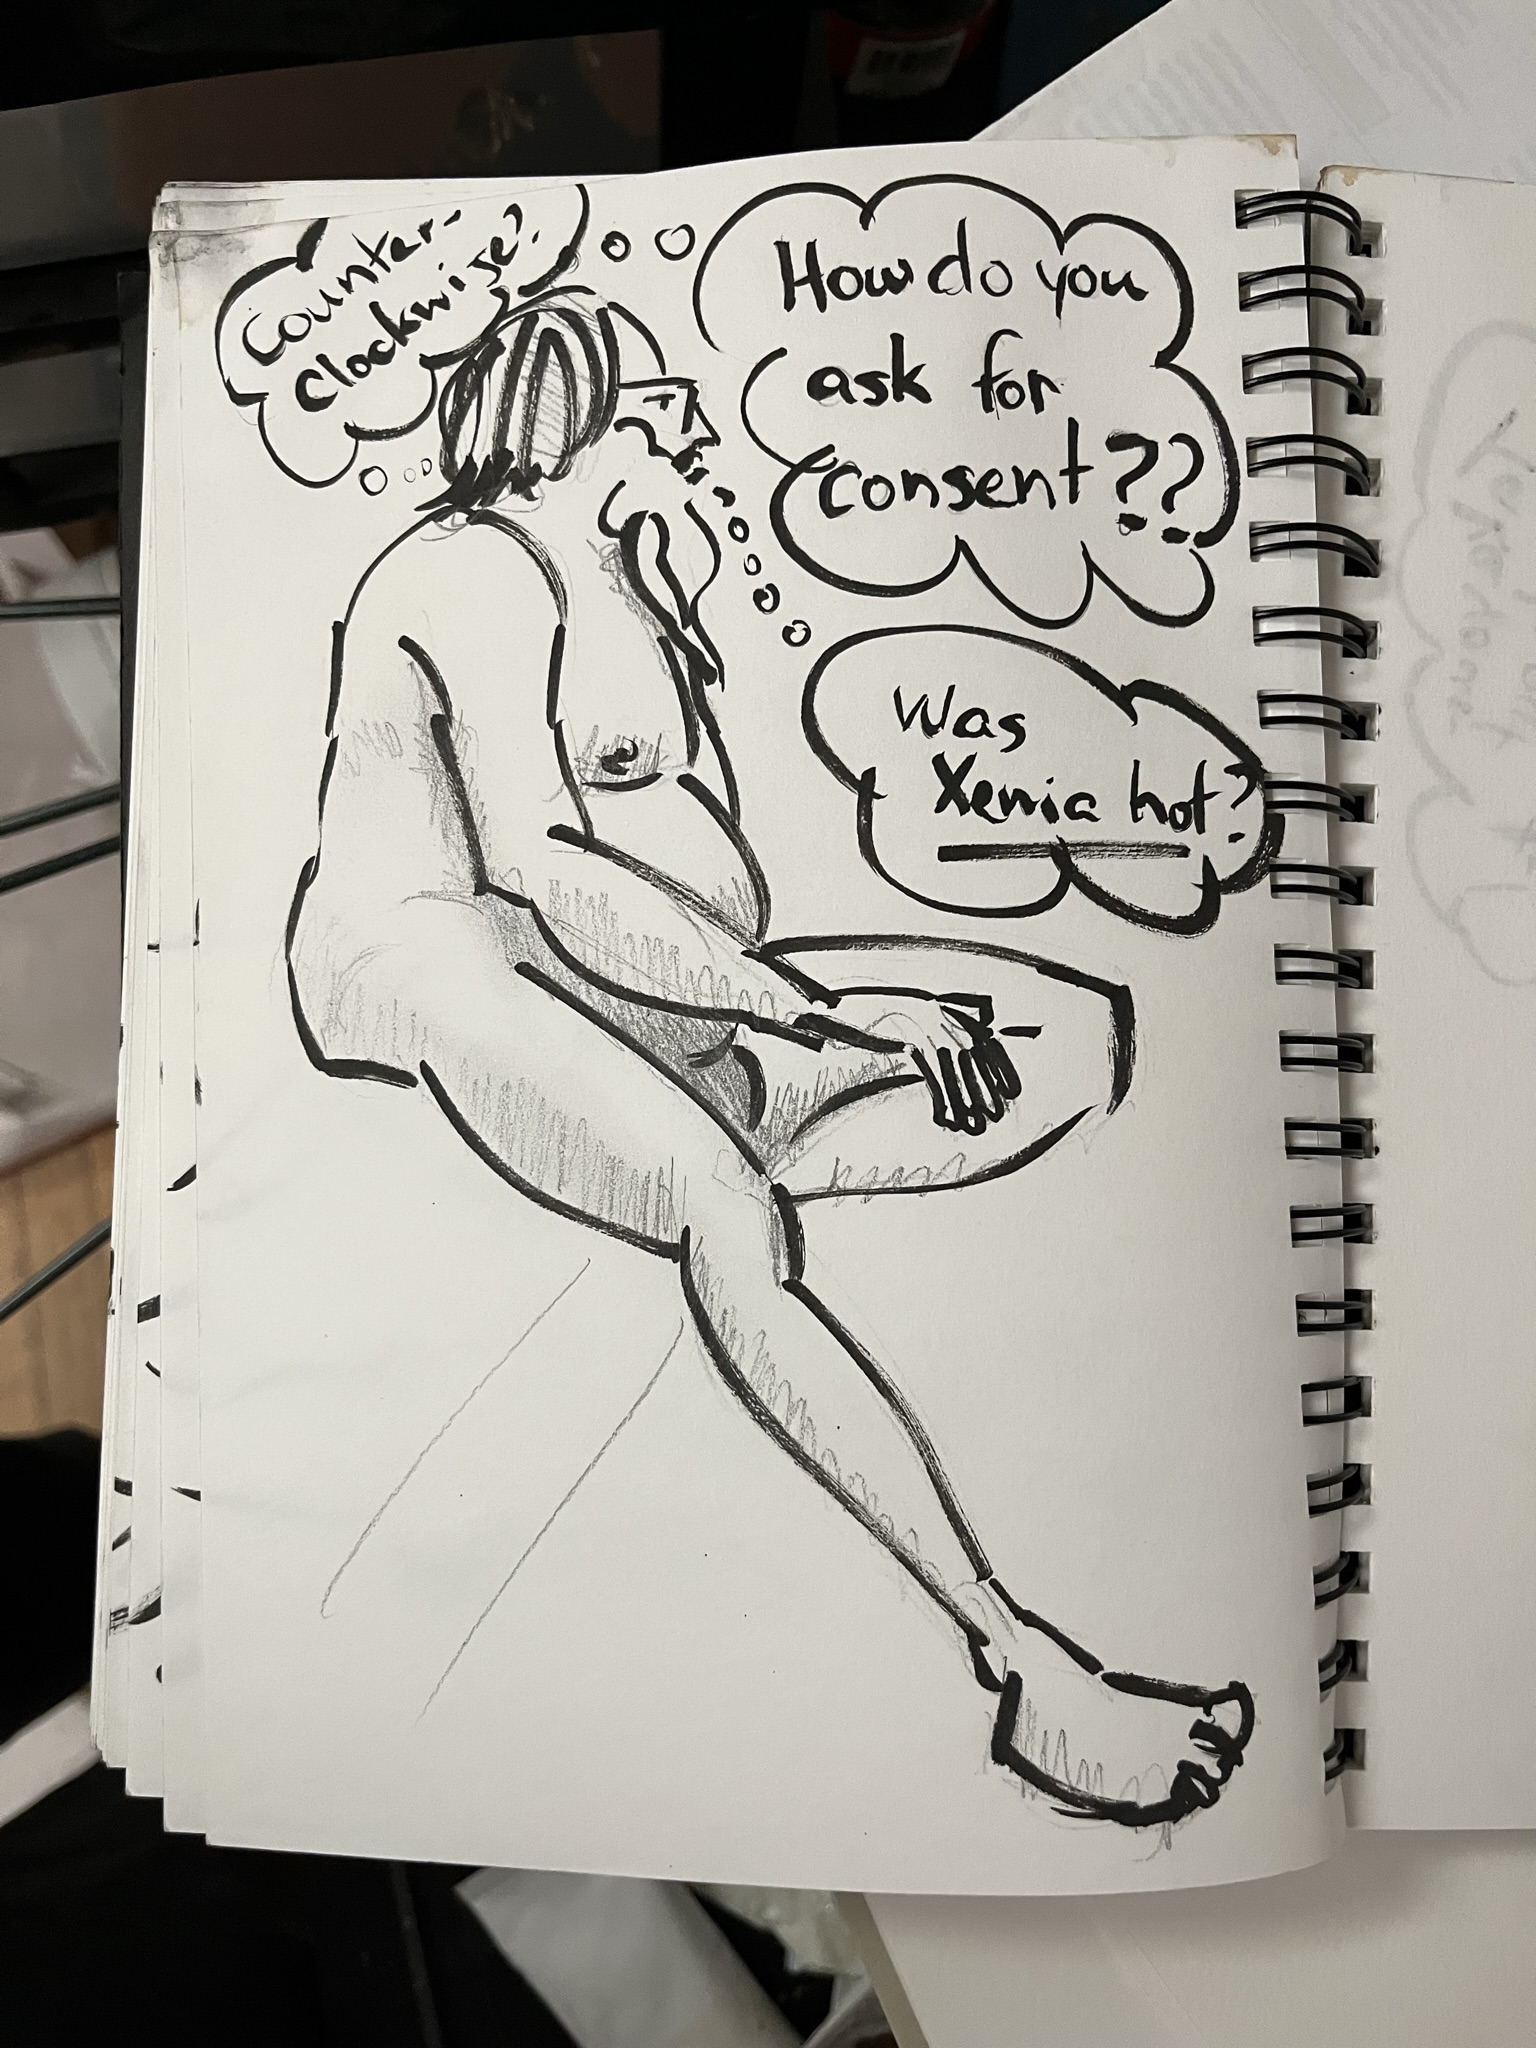 Counter-
Clockwise?
How do you
ask for
consent??
Was
Xenia hot?